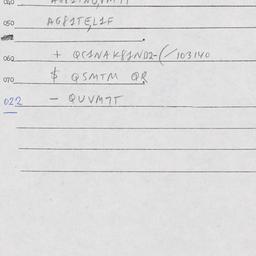 040
050 AG81TEL1F
060 + QC1NAK81ND2-(/103140
070 $ QSMTM QR
022 - QUVM7T